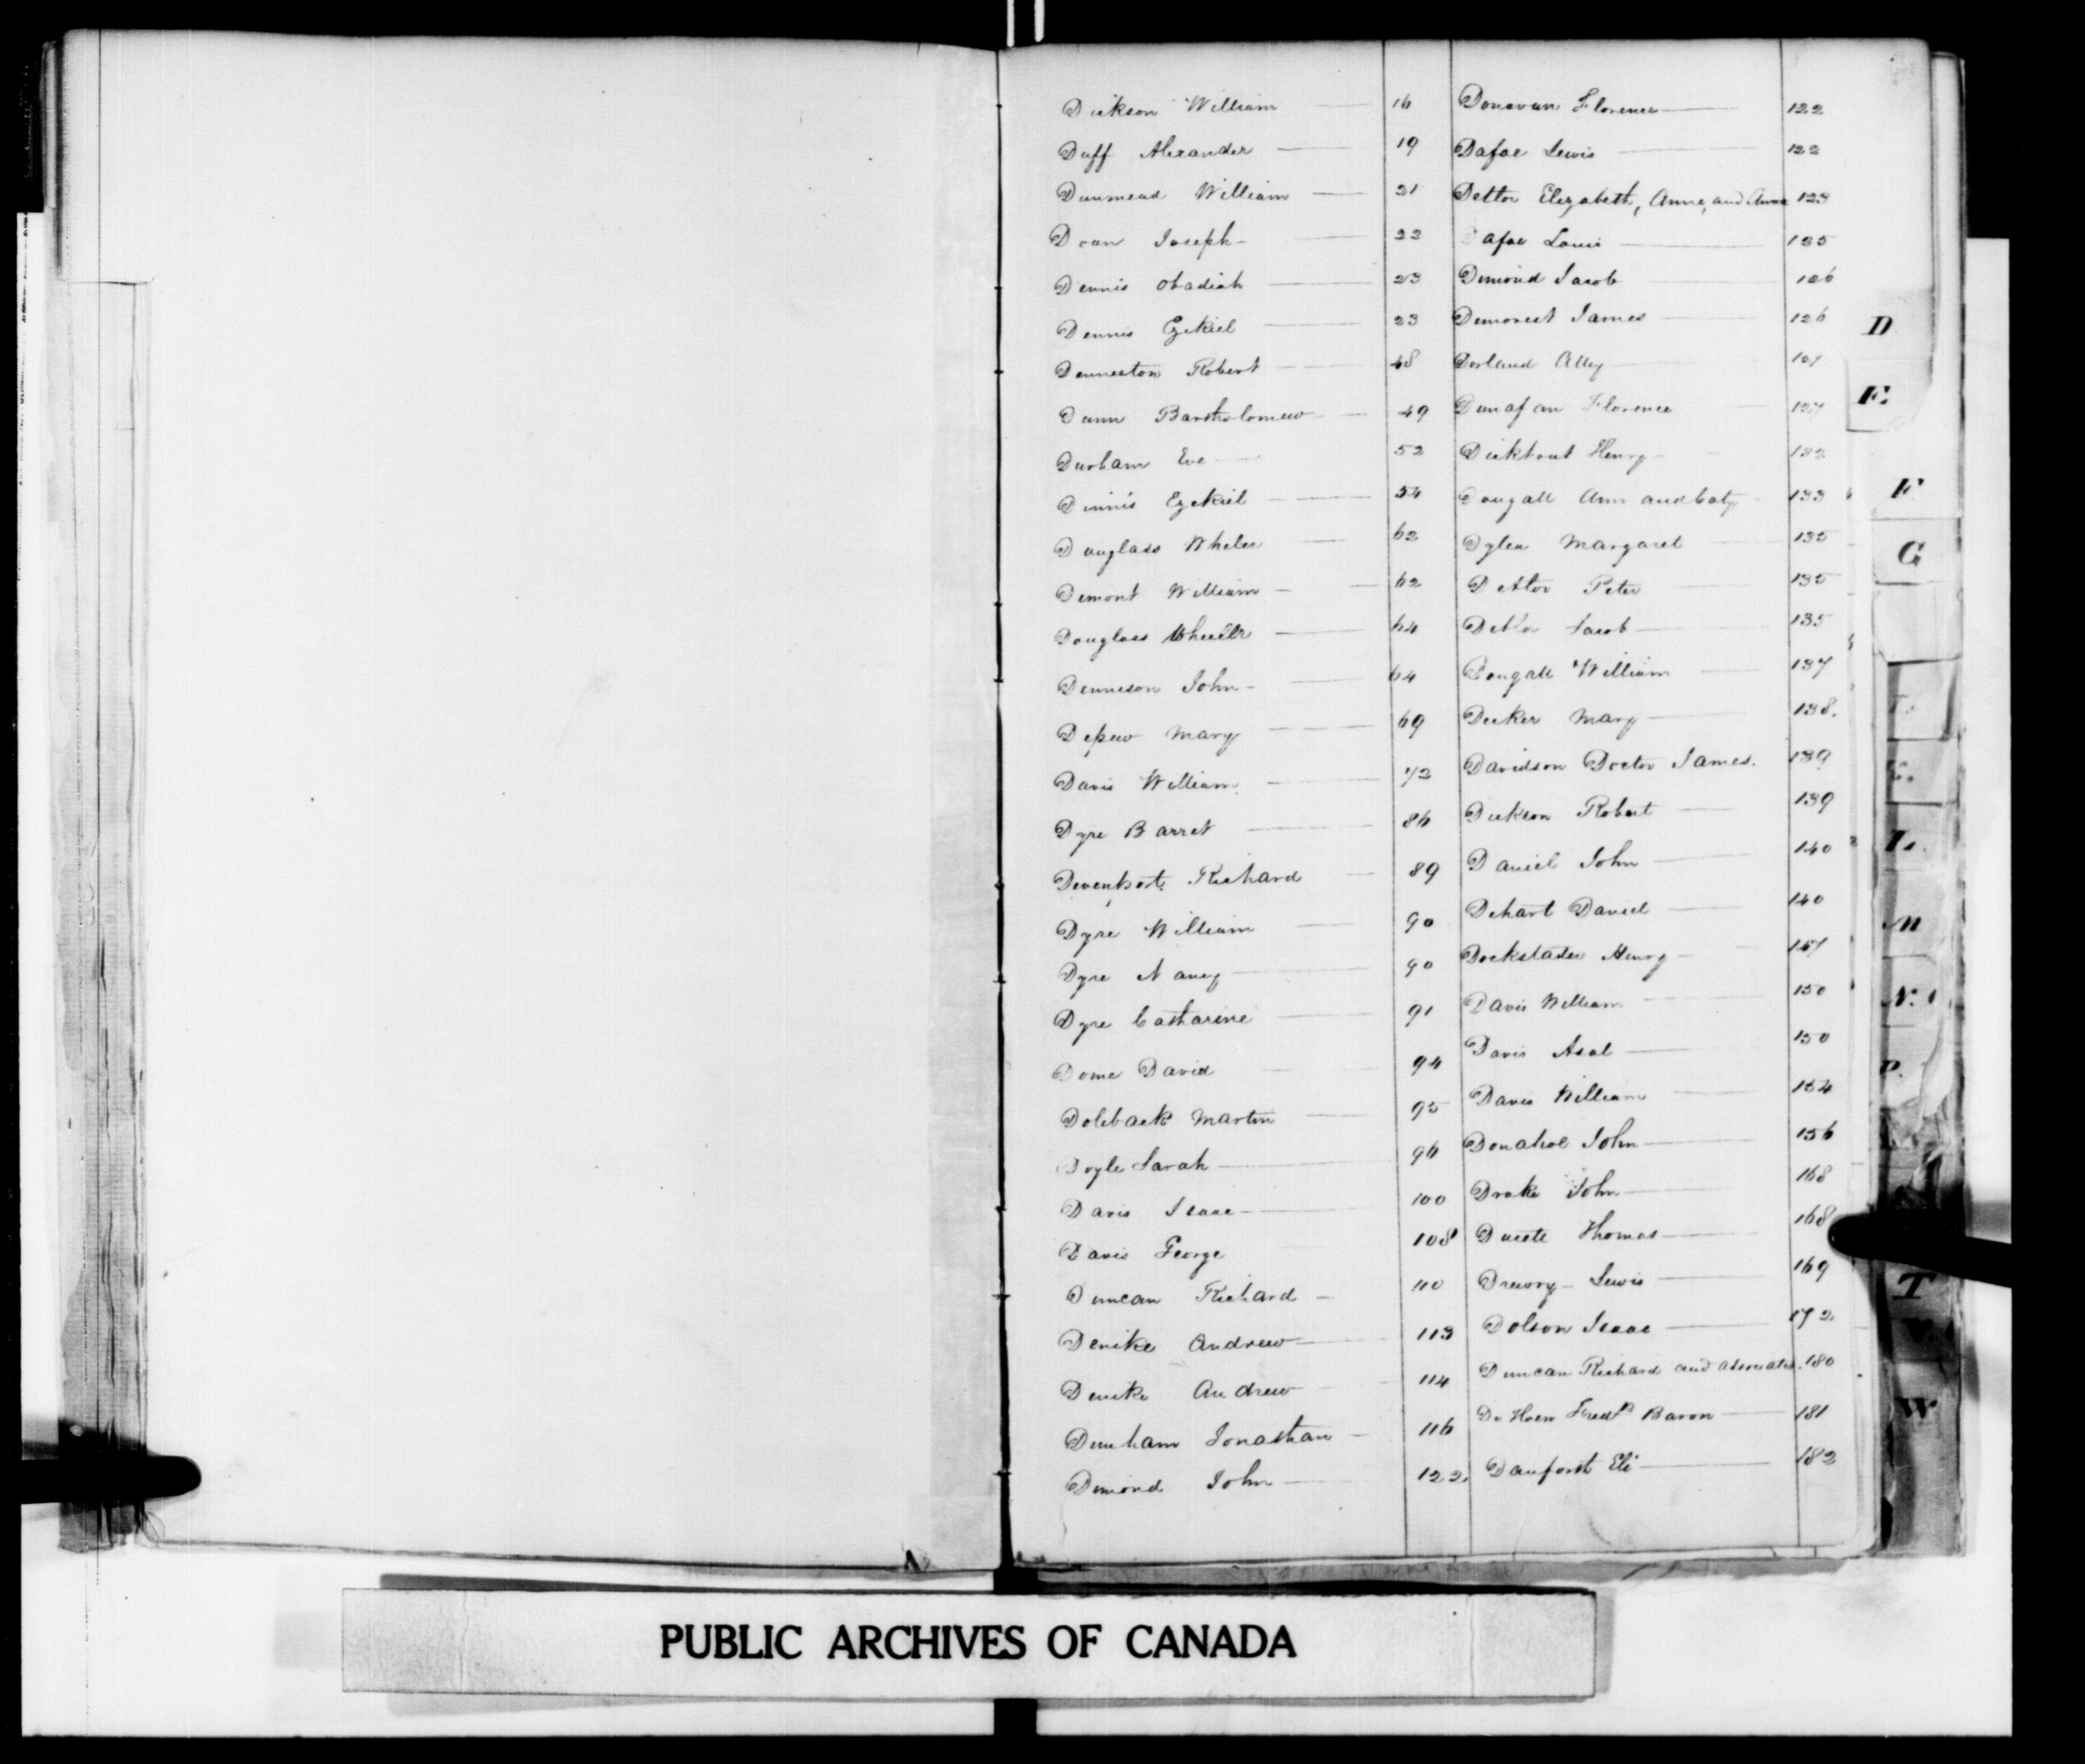 Dickson William 16
Duff Alexander 19
Dunmead William 21
Doan Joseph 22
Dennis Obadiah 23
Dennis Ezekiel 23
Denneston Robert 48
Dunn Bartholomew 49
Durham Eve 52
Dinnis Ezekiel 54
Douglass Wheler 62
Demont William 62
Douglass Wheeler 64
Denneson John 64
Depew Mary 69
Davis William 72
Dyre Barret 86
Devenport Richard 89
Dyre William 90
Dyre Nancy 90
Dyre Catharine 91
Dome David 94
Doleback Martin 95
Doyle Sarah 96
Davis Isaac 100
Davis George 108
Duncan Richard 110
Denike Andrew 113
Denike Andrew 114
Dunham Jonathan 116
Dimond John 122
Donovan Florence 122
Dafoe Lewis 122
Dettor Elizabeth, Anne, and Anna 123
Dafoe Louis 125
Dimond Jacob 126
Demorest James 126
Dorland Alley 127
Dunafan Florence 127
Dickhout Henry 132
Dougall Ann and Caty 133
Dylea Margaret 135
Detlor Peter 135
Detlor Jacob 135
Dougall William 137
Decker Mary 138.
Davidson Doctor James. 139
Dickson Robert 139
Daniel John 140
Dehart Daniel 140
Dockstader Henry 147
Davis William 150
Davis Asal 150
Davis William 154
Donahoe John 156
Drake John 168
Thomas 168
Drewry Lewis 169
Dolson Isaac 172
Duncan Richard and associates. 180
De Hoen Fredk Baron 181
Danforst Eli 182
D
E.
F
G
L.
M
N.
P.
T
W
PUBLIC ARCHIVES OF CANADA